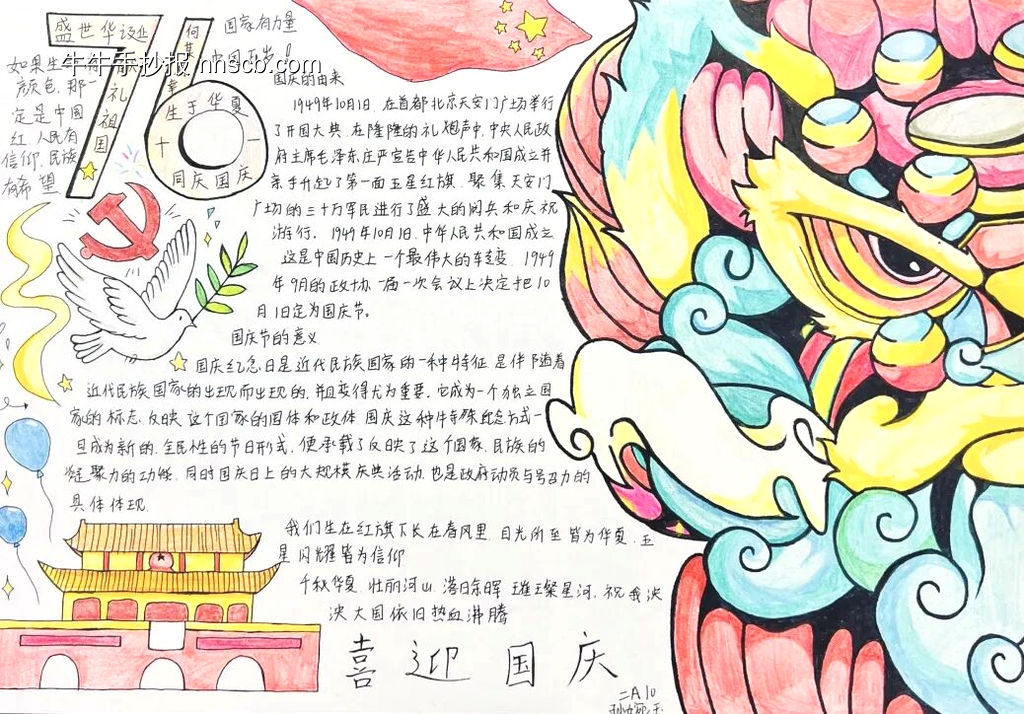 盛世华诞
礼
祖
国
何
其
幸
生于华夏
十一
同庆国庆
国家有力量
中国正当
牛牛手抄报 nnscb.com
如果
颜色,那一
定是中国
红,人民有
信仰,民族
有希望
国庆的由来
1949年10月1日,在首都北京天安门广场举行
了开国大典,在隆隆的礼炮声中,中央人民政
府主席毛泽东庄严宣告中华人民共和国成立并
亲手升起了第一面五星红旗.聚集天安门
广场的三十万军民进行了盛大的阅兵和庆祝
游行。1949年10月1日,中华人民共和国成立
这是中国历史上一个最伟大的转变.1949
年9月的政协一届一次会议上决定把10
月1日定为国庆节。
国庆节的意义
国庆纪念日是近代民族国家的一种特征,是伴随着
近代民族国家的出现而出现的,并且变得尤为重要。它成为一个独立国
家的标志,反映这个国家的国体和政体.国庆这种特殊纪念方式一
旦成为新的、全民性的节日形式,便承载了反映了这个国家、民族的
凝聚力的功能.同时国庆日上的大规模庆典活动,也是政府动员与号召力的
具体体现
我们生在红旗下长在春风里.目光所至皆为华夏,五
星闪耀皆为信仰
千秋华夏,壮丽河山,落日余晖,璀璨星河,祝我泱
泱大国依旧热血沸腾
喜迎国庆
二A10